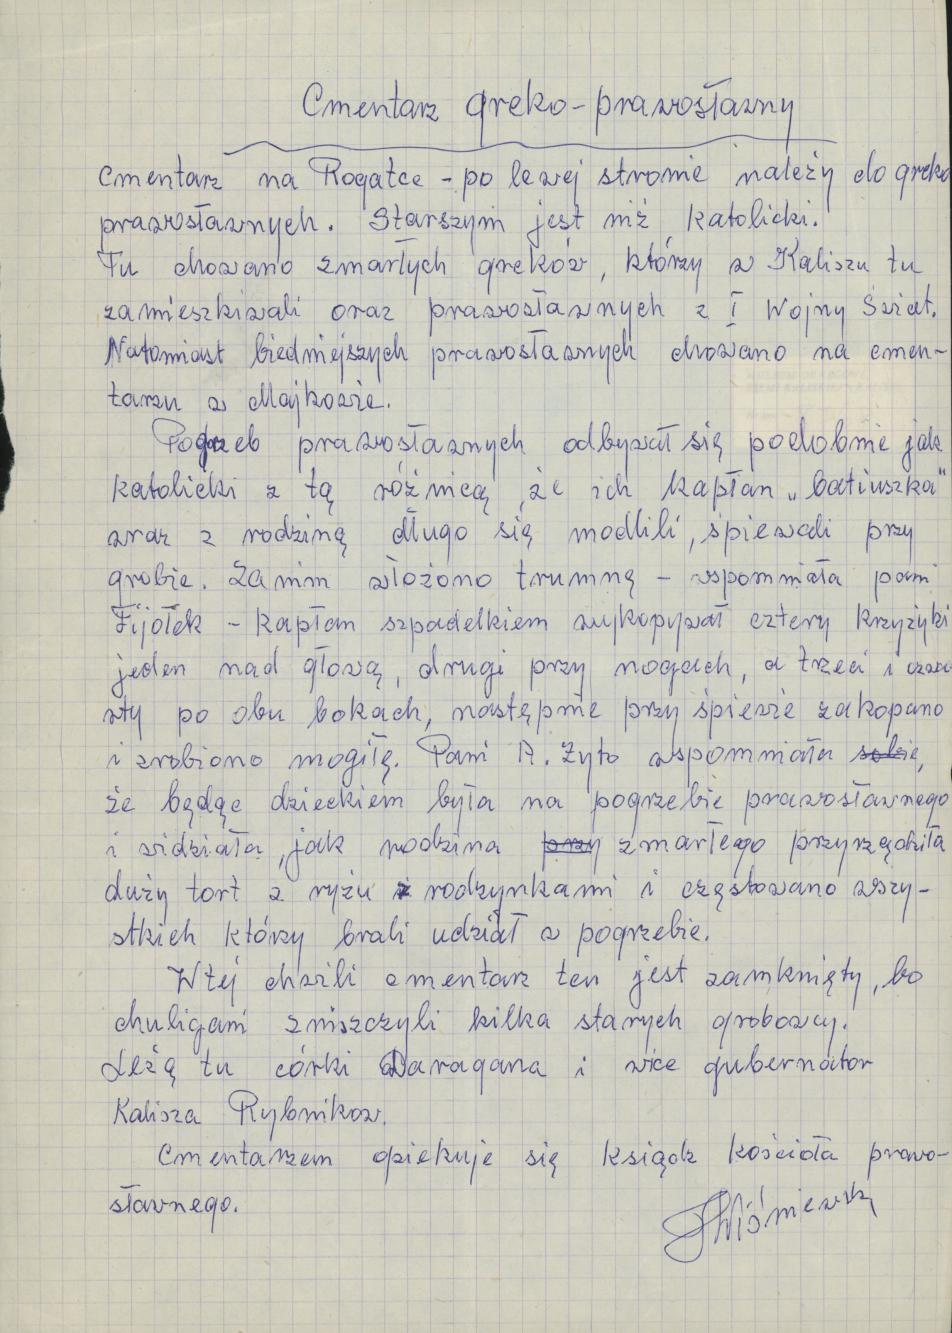 Cmentarz greko-prawosławny
Cmentarz na Rogatce - po lewej stronie należy do greko
prawosławnych. Starszym jest niż katolicki.
Tu chowano zmarłych greków, którzy w Kaliszu tu
zamieszkiwali oraz prawosławnych z I Wojny Świat.
Natomiast biedniejszych prawosławnych chowano na cmen-
tarzu w Majkowie.
Pogrzeb prawosławnych odbywał się podobnie jak
katolicki z tą różnicą, że ich kapłan „batiuszka"
wraz z rodziną długo się modlili, śpiewali przy
grobie. Zanim włożono trumnę - wspomniała pani
Fijołek - kapłan szpadelkiem wykopywał cztery krzyżyki
jeden nad głową, drugi przy nogach, a trzeci i czwa
rty po obu bokach, następnie przy śpiewie zakopano
i zrobiono mogiłę. Pani A. Żyto wspomniała sobie,
że będąc dzieckiem była na pogrzebie prawosławnego
i widziała, jak rodzina przy zmarłego przyrządziła
duży tort z ryżu z rodzynkami i częstowano wszy-
stkich którzy brali udział w pogrzebie.
W tej chwili cmentarz ten jest zamknięty, bo
chuligani zniszczyli kilka starych grobowcy.
Leżą tu córki Daragana i wice gubernator
Kalisza Rybnikow.
Cmentarzem opiekuje się ksiądz kościoła prawo-
sławnego.
Wiśniewska